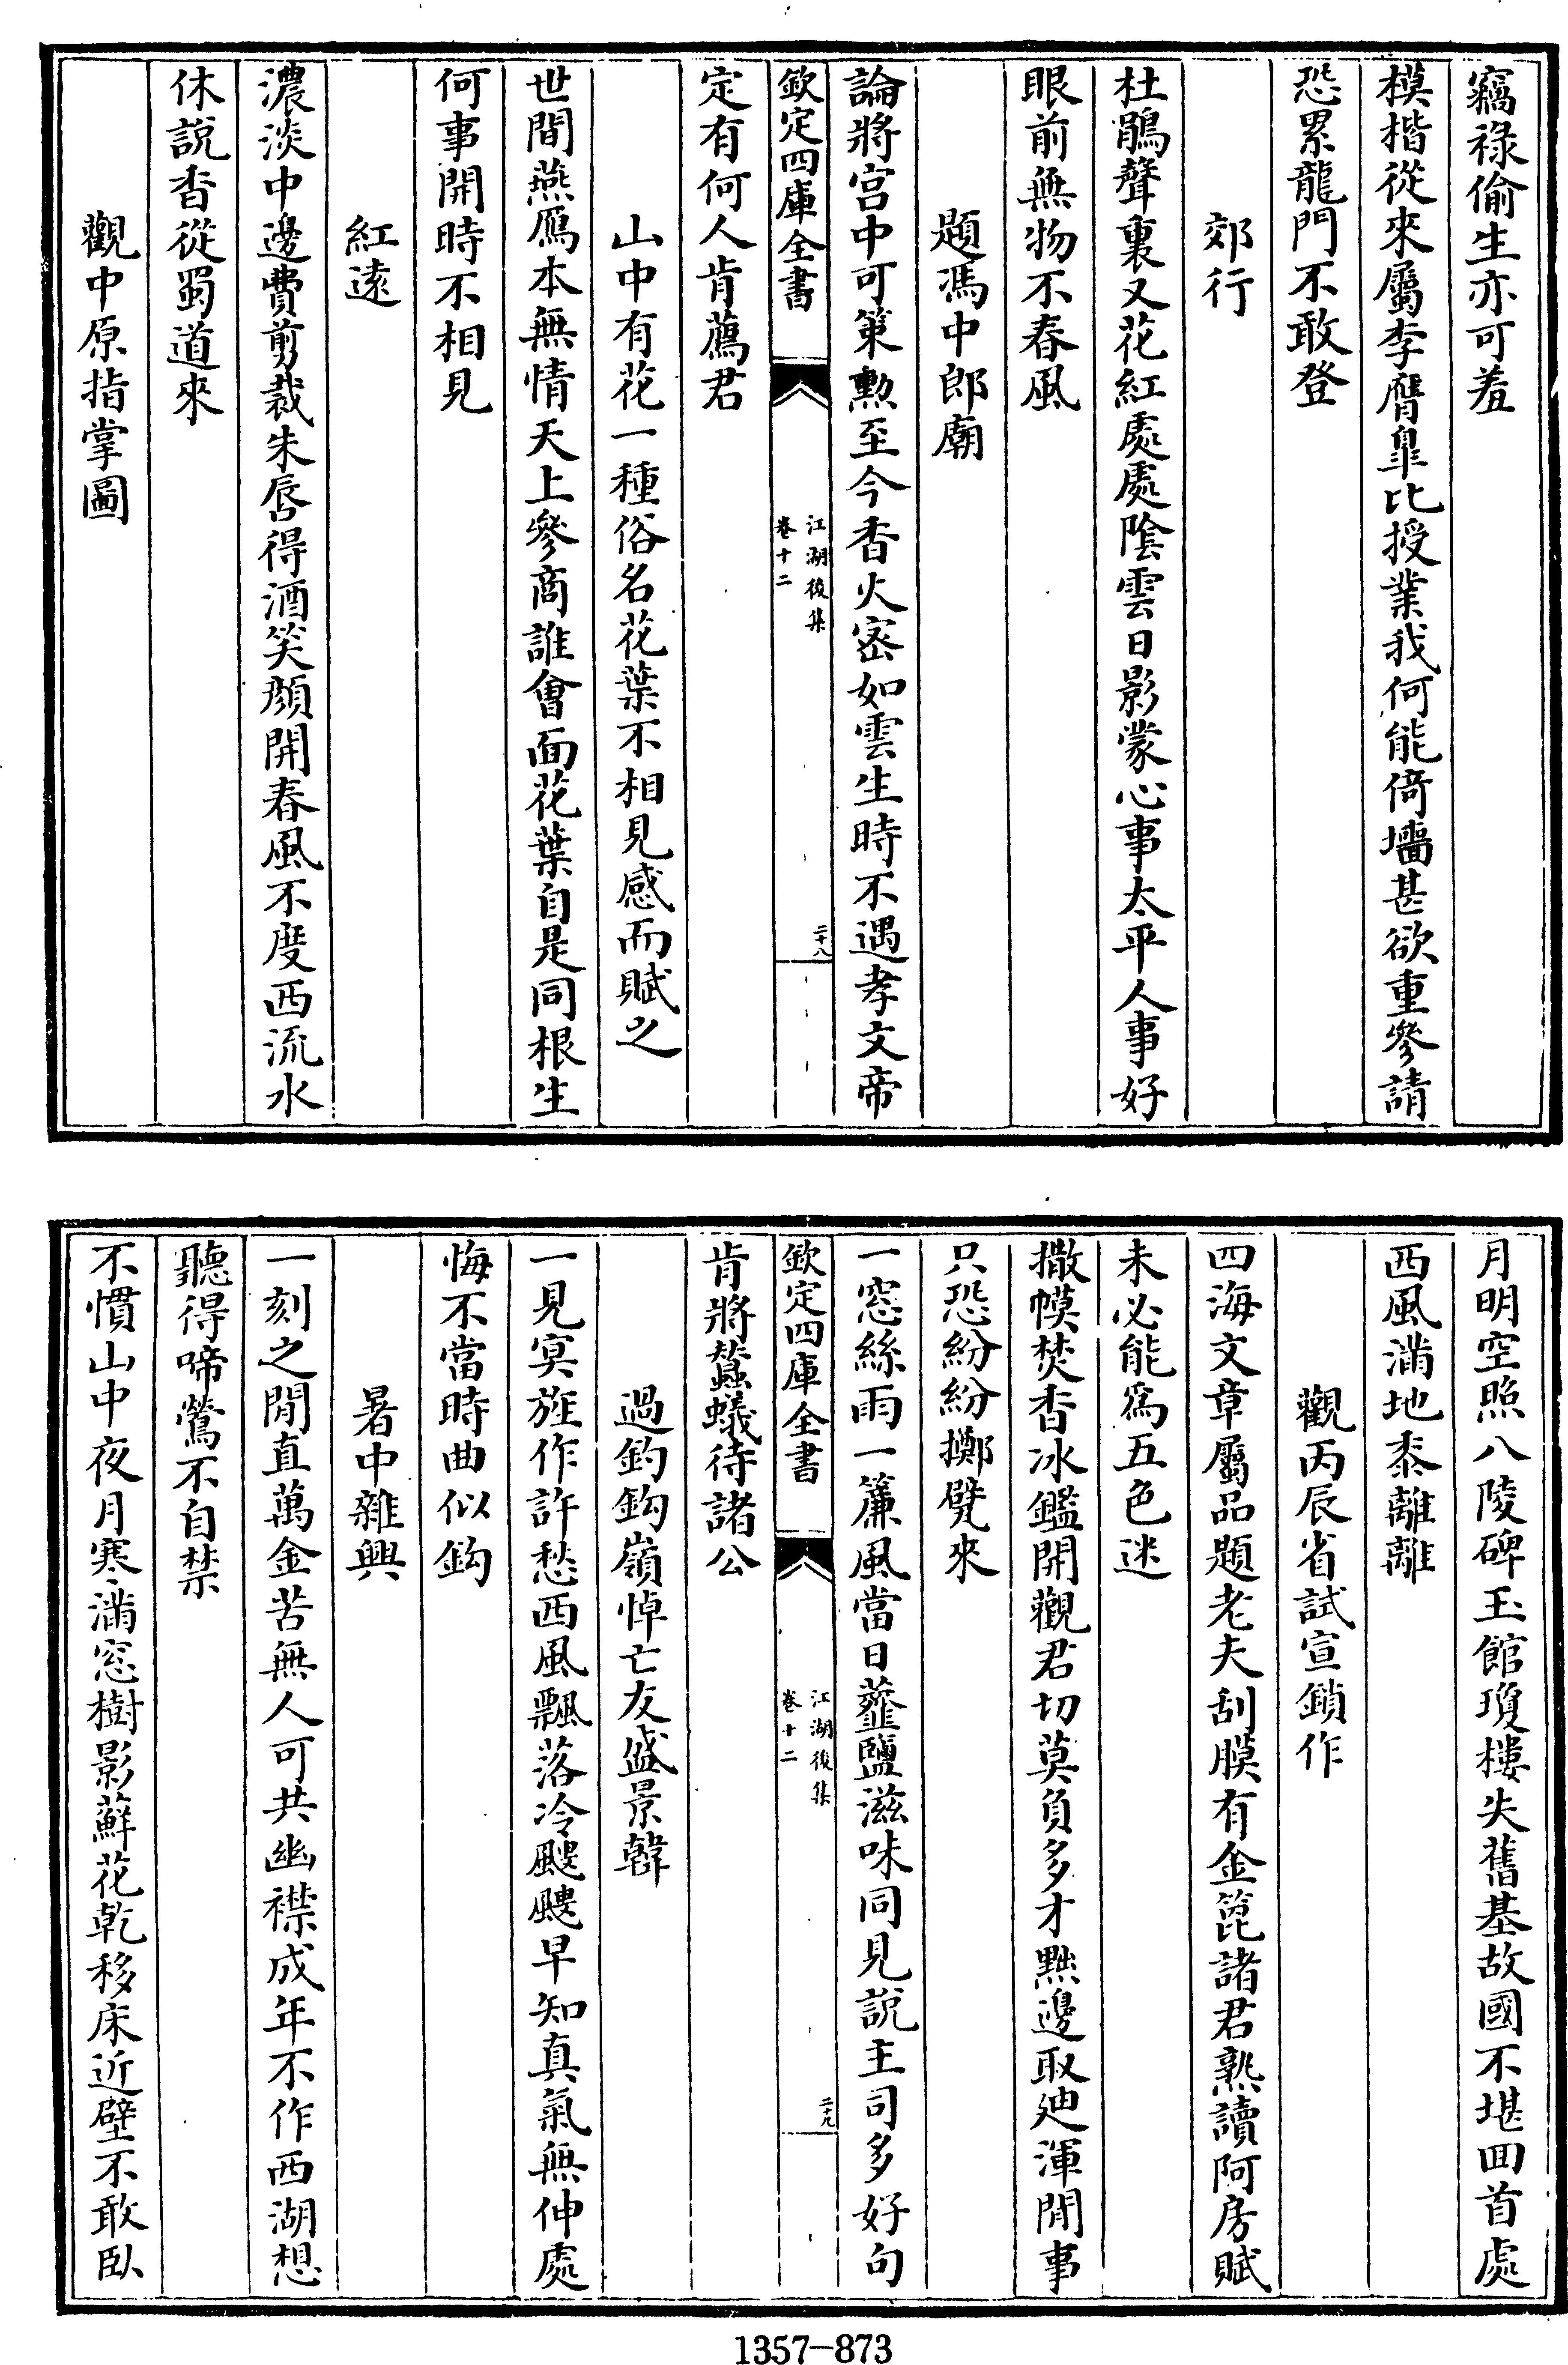 竊祿偷生亦可羞
模楷從來屬李膺臯比授業我何能倚墻甚欲重參請
恐累龍門不敢登
郊行
杜鵑聲裏又花紅處處陰雲日影蒙心事太平人事好
眼前無物不春風
題馮中郎廟
論將宫中可策勲至今香火密如雲生時不遇孝文帝
欽定四庫全書
江湖後集
卷十二
二十八
定有何人肯薦君
山中有花一種俗名花葉不相見感而賦之
世間燕鴈本無情天上參商誰會面花葉自是同根生
何事開時不相見
紅遠
濃淡中邊費剪裁朱唇得酒笑顔開春風不度西流水
休說香從蜀道來
觀中原指掌圖
月明空照八陵碑玉館瓊樓失舊基故國不堪回首處
西風滿地黍離離
觀丙辰省試宣鎖作
四海文章屬品題老夫刮膜有金篦諸君熟讀阿房賦
未必能為五色迷
撒幙焚香冰鑑開觀君切莫負多才點邊取廸渾閒事
只恐紛紛擲甓來
一窓絲雨一簾風當日虀鹽滋味同見說主司多好句
欽定四庫全書
江湖後集
卷十二
二十九
肯將蠶蟻待諸公
過釣鈎嶺悼亡友盛景韓
一見寞旌作許愁西風飄落冷颼颼早知真氣無伸處
悔不當時曲似鈎
暑中雜興
一刻之閒直萬金苦無人可共幽襟成年不作西湖想
聽得啼鶯不自禁
不慣山中夜月寒滿窓樹影蘚花乾移床近壁不敢臥
1357-873